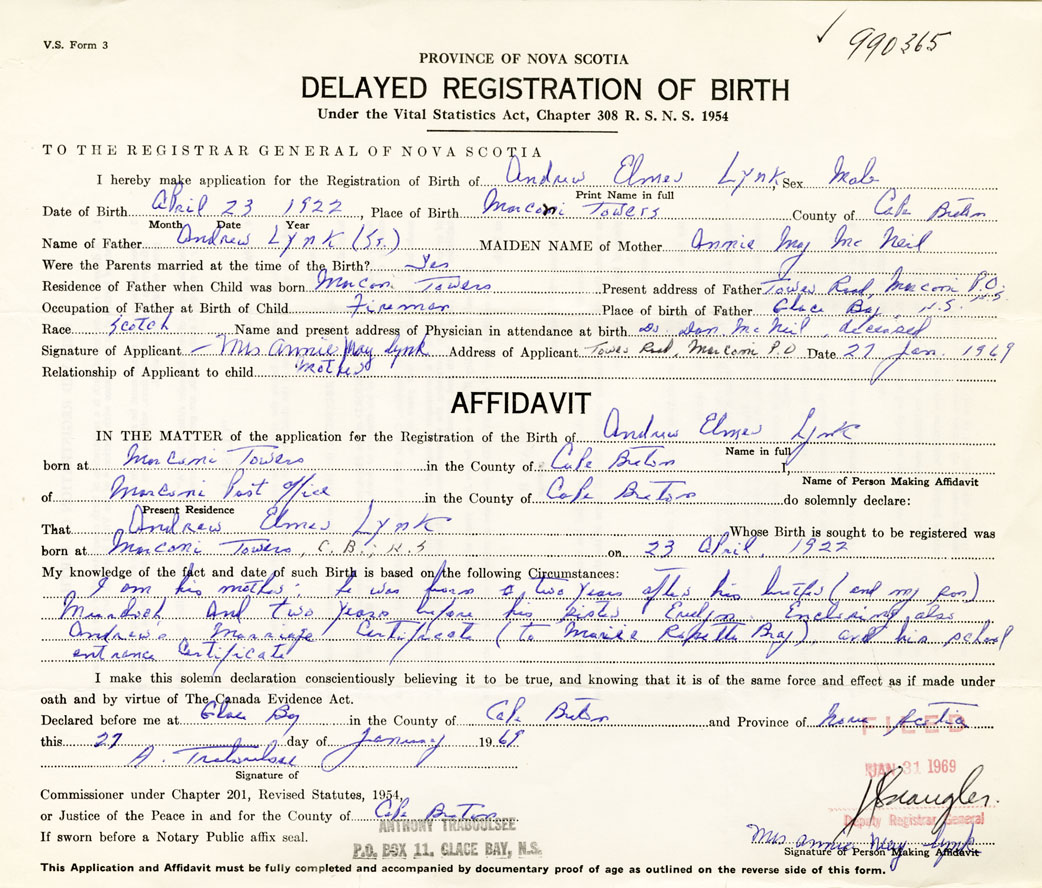 V.S. Form 3
✓ 990365
PROVINCE OF NOVA SCOTIA
DELAYED REGISTRATION OF BIRTH
Under the Vital Statistics Act, Chapter 308 R. S. N. S. 1954
TO THE REGISTRAR GENERAL OF NOVA SCOTIA
I hereby make application for the Registration of Birth of Andrew Elmer Lynk, Sex Male
Print Name in full
Date of Birth April 23 1922, Place of Birth Marconi Towers County of Cape Breton
Month Date Year
Name of Father Andrew Lynk (Sr.) MAIDEN NAME of Mother Annie May Mc Neil
Were the Parents married at the time of the Birth? Yes
Residence of Father when Child was born Marconi Towers Present address of Father Tower Road, Marconi P.O. N.S.
Occupation of Father at Birth of Child Fireman Place of birth of Father Glace Bay, N.S.
Race Scotch Name and present address of Physician in attendance at birth Dr. Dan Mc Neil, deceased
Signature of Applicant – Mrs Annie May Lynk Address of Applicant Tower Road, Marconi P.O Date 27 Jan. 1969
Relationship of Applicant to child mother
AFFIDAVIT
IN THE MATTER of the application for the Registration of the Birth of Andrew Elmer Lynk
Name in full
born at Marconi Towers in the County of Cape Breton I,
Name of Person Making Affidavit
of Marconi Post Office in the County of Cape Breton do solemnly declare:
Present Residence
That Andrew Elmer Lynk Whose Birth is sought to be registered was
born at Marconi Towers, C.B., N.S on 23 April, 1922
My knowledge of the fact and date of such Birth is based on the following Circumstances:
I am his mother; he was born two years after his brother (and my son)
Murdoch and two years before his sister Evelyn. Enclosing also
Andrew's Marriage Certificate (to Marie Bray), and his school
entrance Certificate
I make this solemn declaration conscientiously believing it to be true, and knowing that it is of the same force and effect as if made under
oath and by virtue of The Canada Evidence Act.
Declared before me at Glace Bay in the County of Cape Breton and Province of Nova Scotia
FILED
this 27 day of January 1969
JAN 31 1969
A. Traboulsee
Signature of
Commissioner under Chapter 201, Revised Statutes, 1954,
or Justice of the Peace in and for the County of Cape Breton
Deputy Registrar General
ANTHONY TRABOULSEE
If sworn before a Notary Public affix seal.
P.O. BOX 11, GLACE BAY, N.S.
Mrs Annie May Lynk
Signature of Person Making Affidavit
This Application and Affidavit must be fully completed and accompanied by documentary proof of age as outlined on the reverse side of this form.